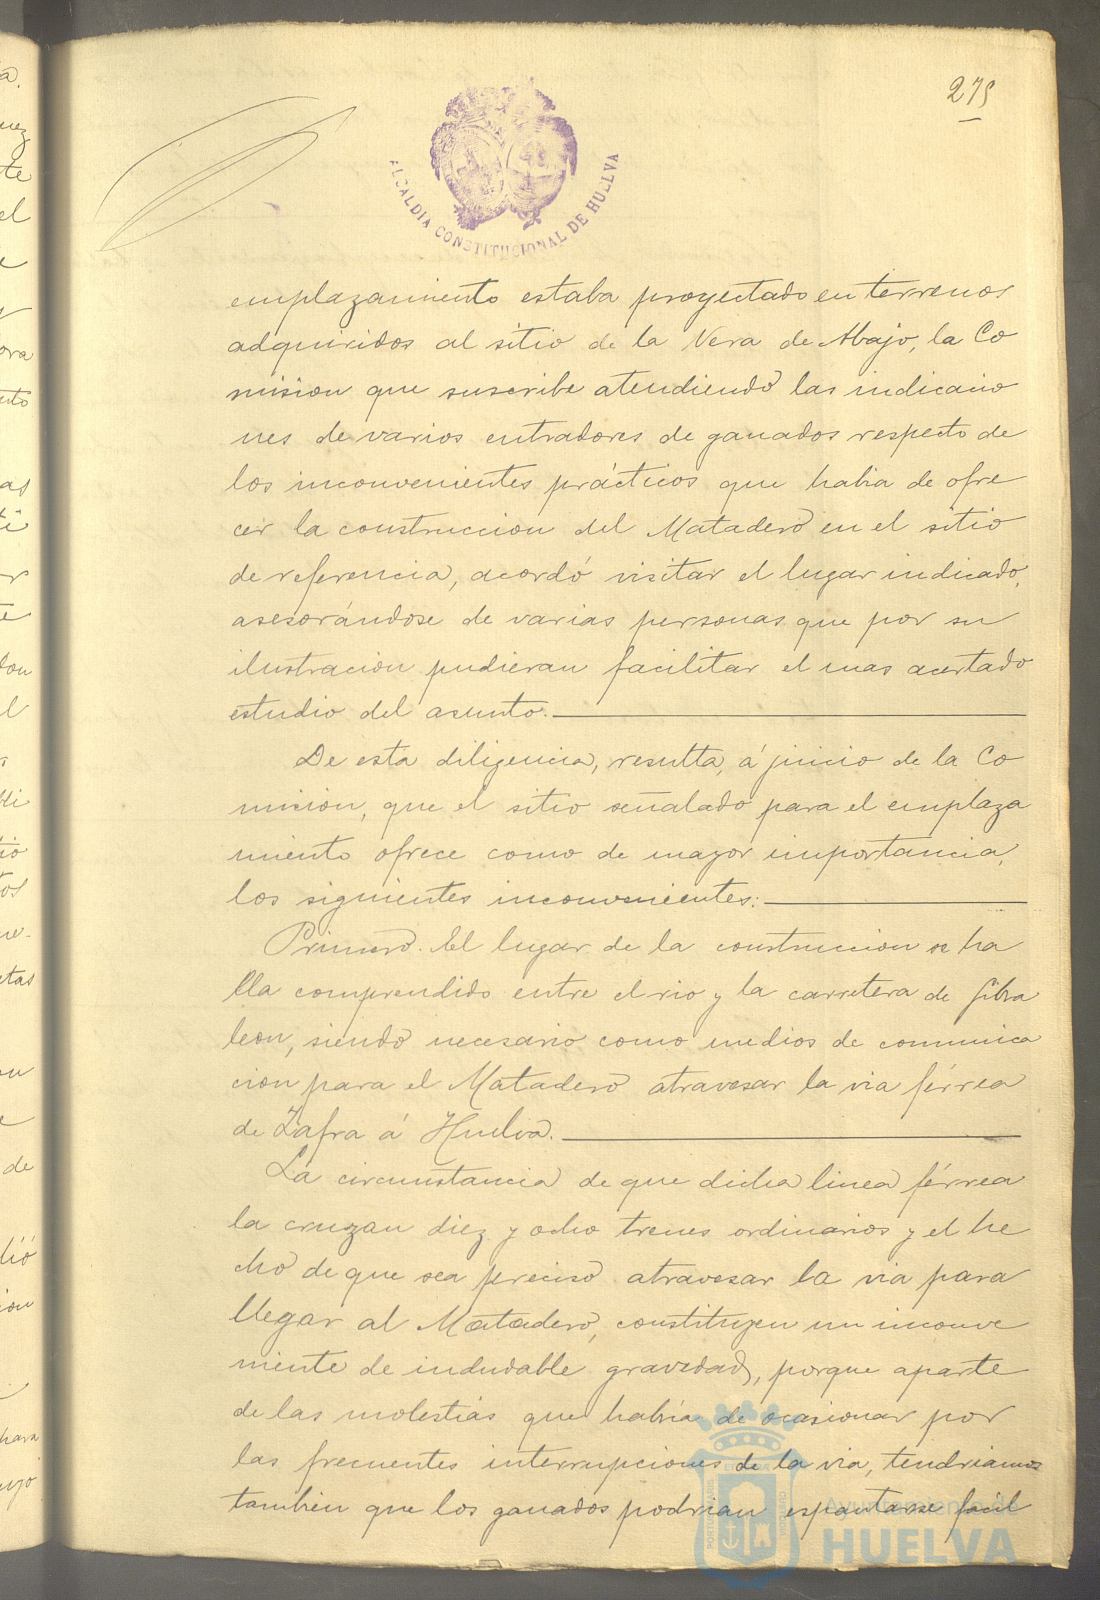 275
ALCALDIA CONSTITUCIONAL DE HUELVA
emplazamiento estaba proyectado en terrenos
adquiridos al sitio de la Vera de Abajo, la Co
mision que suscribe atendiendo las indicacio
nes de varios entradores de ganados respecto de
los inconvenientes prácticos que habia de ofre
cer la construccion del Matadero en el sitio
de referencia, acordó visitar el lugar indicado,
asesorándose de varias personas que por su
ilustracion pudieran facilitar el mas acertado
estudio del asunto.
De esta diligencia, resulta, á juicio de la Co
mision, que el sitio señalado para el emplaza
miento ofrece como de mayor importancia,
los siguientes inconvenientes:
Primero. El lugar de la construccion se ha
lla comprendido entre el rio y la carretera de Gibra
leon, siendo necesario como medios de comunica
cion para el Matadero atravesar la via férrea
de Zafra á Huelva.
La circunstancia de que dicha linea férrea
la cruzan diez y ocho trenes ordinarios y el he
cho de que sea preciso atravesar la via para
llegar al Matadero, constituyen un inconve
niente de indudable gravedad, porque aparte
de las molestias que habria de ocasionar por
las frecuentes interrupciones de la via, tendriamos
tambien que los ganados podrian espantarse facil
Ayuntamiento de
HUELVA